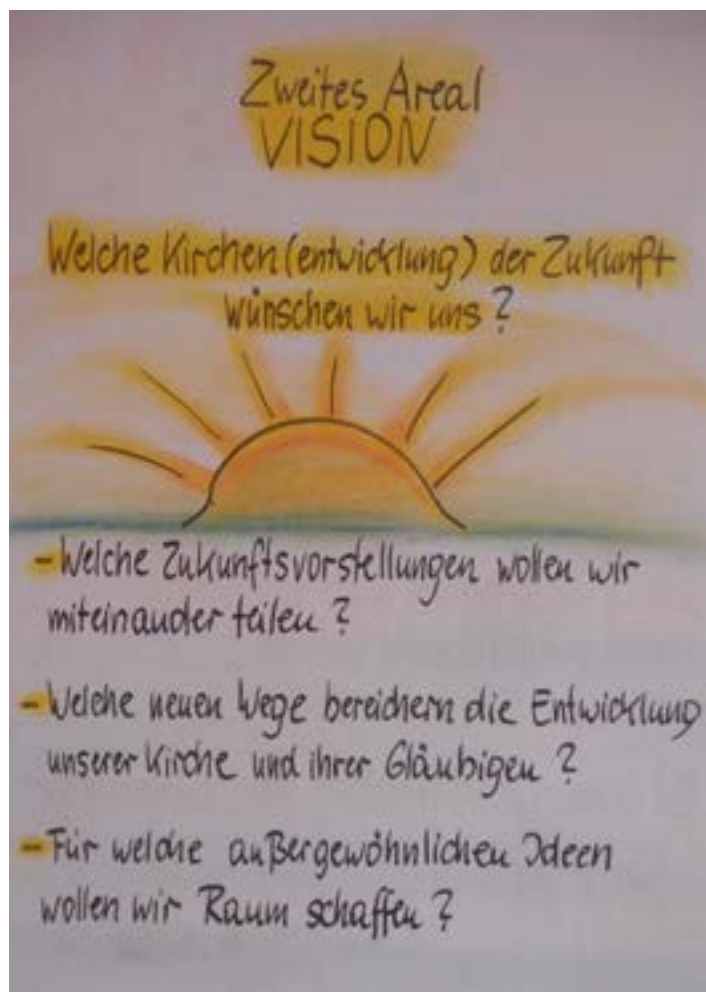 Zweites Areal
VISION
Welche Kirchen(entwicklung) der Zukunft
wünschen wir uns?
- Welche Zukunftsvorstellungen wollen wir
miteinander teilen?
- Welche neuen Wege bereichern die Entwicklung
unserer Kirche und ihrer Gläubigen?
- Für welche außergewöhnlichen Ideen
wollen wir Raum schaffen?